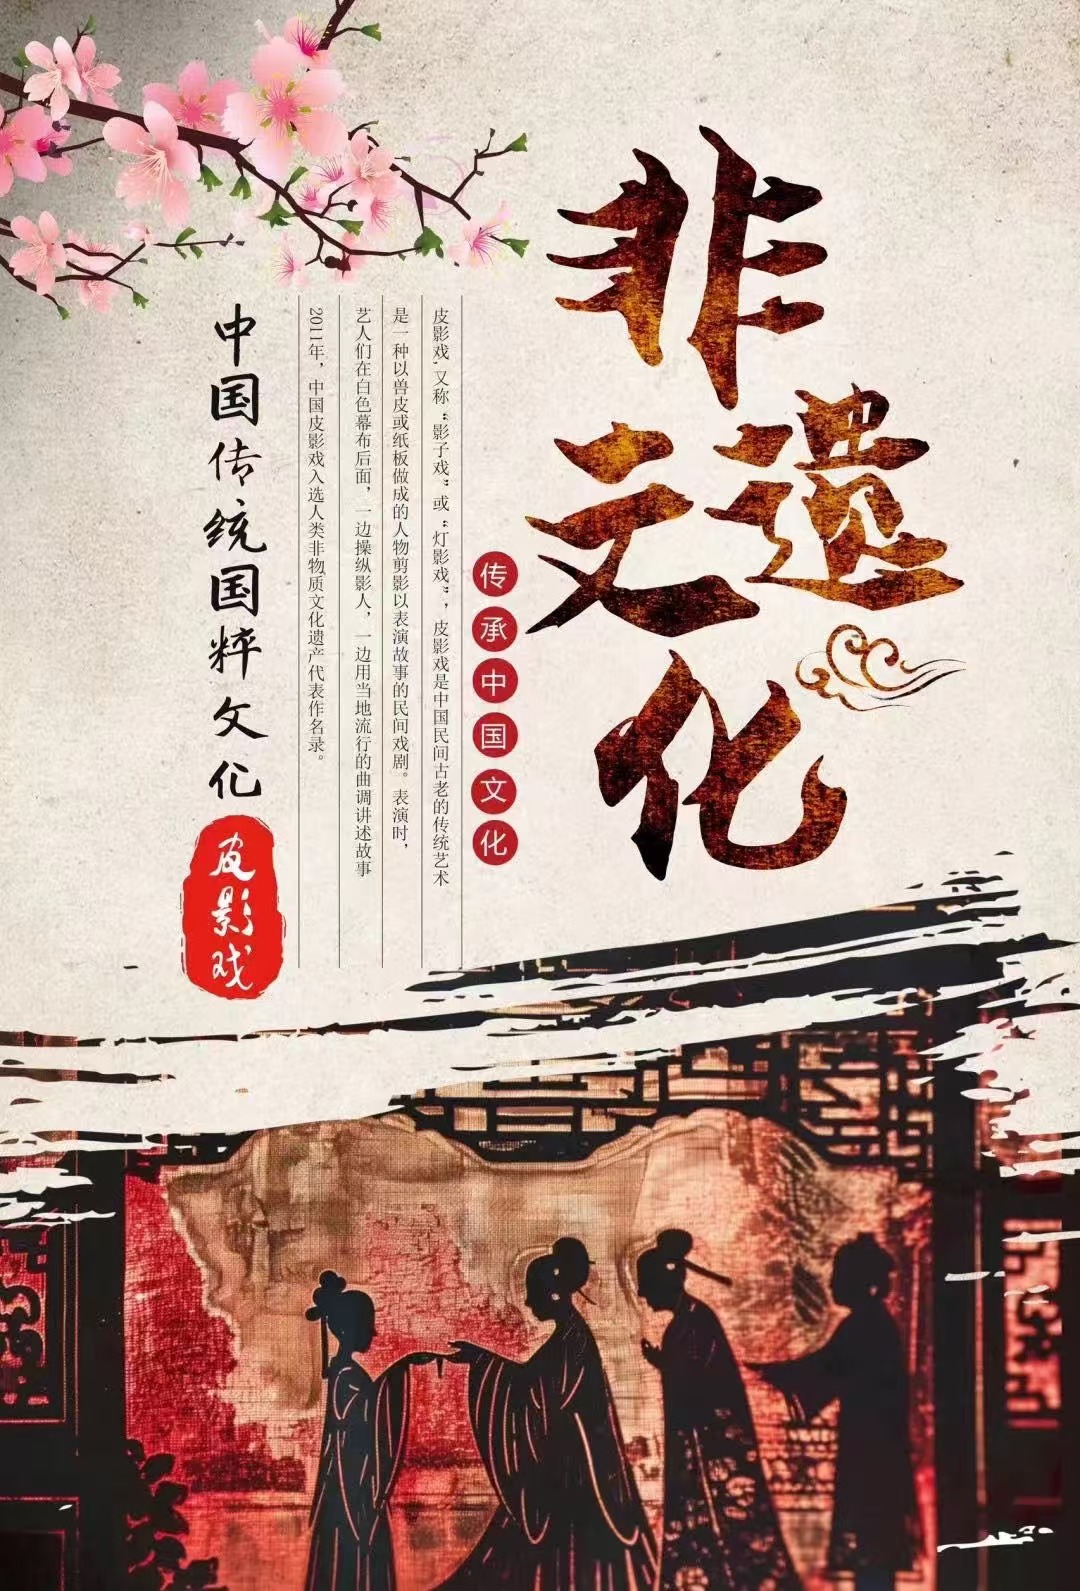 非遗
文化
传承中国文化
皮影戏,又称“影子戏”或“灯影戏”，皮影戏是中国民间古老的传统艺术
是一种以兽皮或纸板做成的人物剪影以表演故事的民间戏剧。表演时，
艺人们在白色幕布后面，一边操纵影人，一边用当地流行的曲调讲述故事
2011年，中国皮影戏入选人类非物质文化遗产代表作名录。
中国传统国粹文化
皮影戏